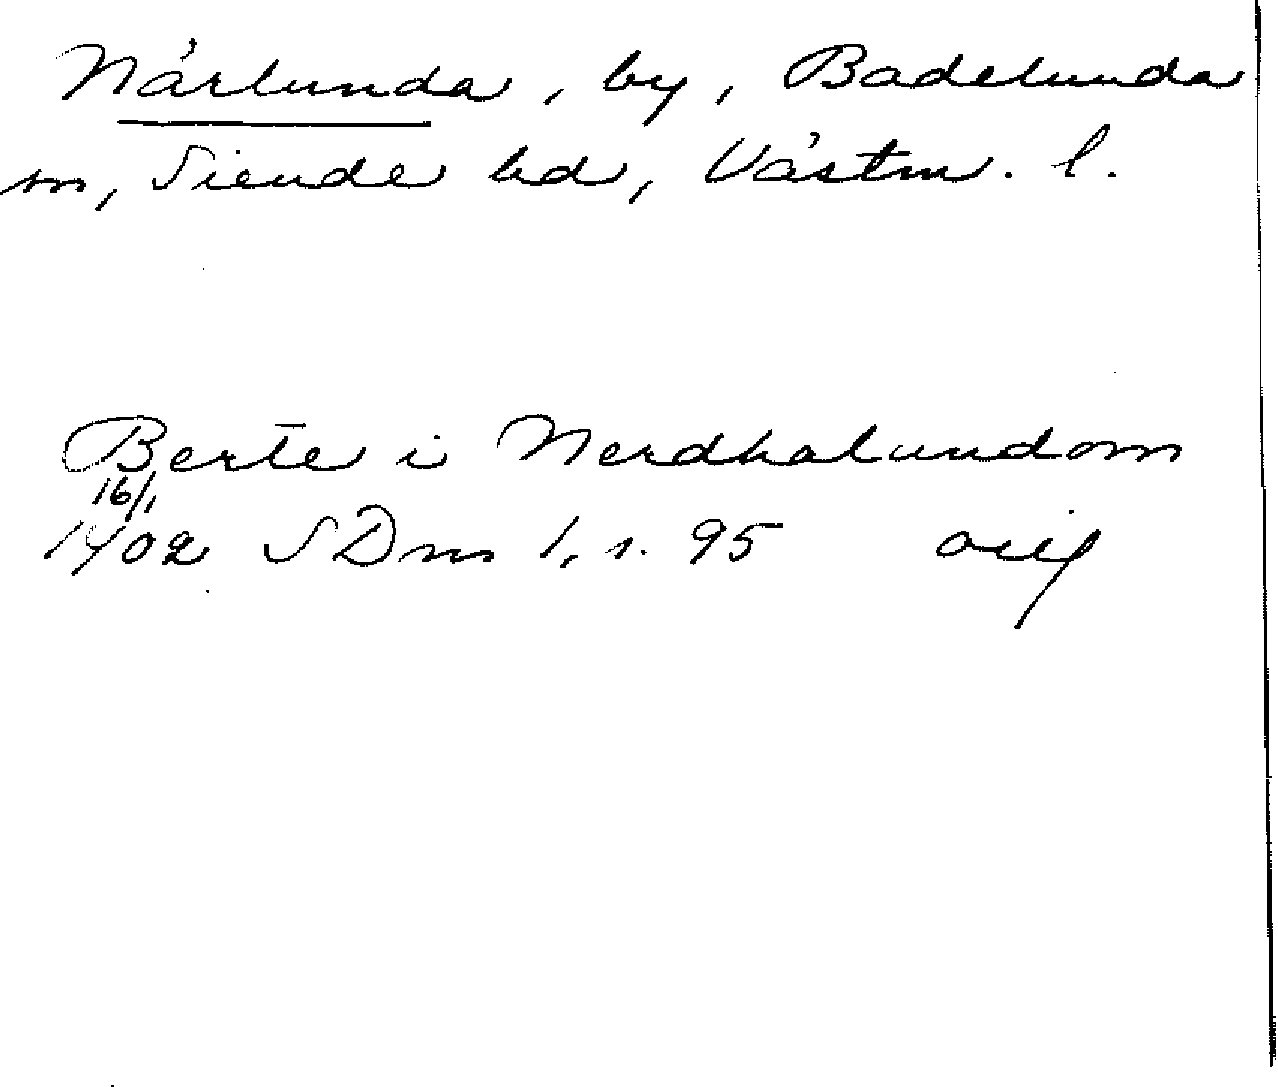 Närlunda, by, Badelunda
sn, Siende hd, Västm. l.
Berte i Nerdhalundom
16/1
1402 SDns 1, s. 95 orig